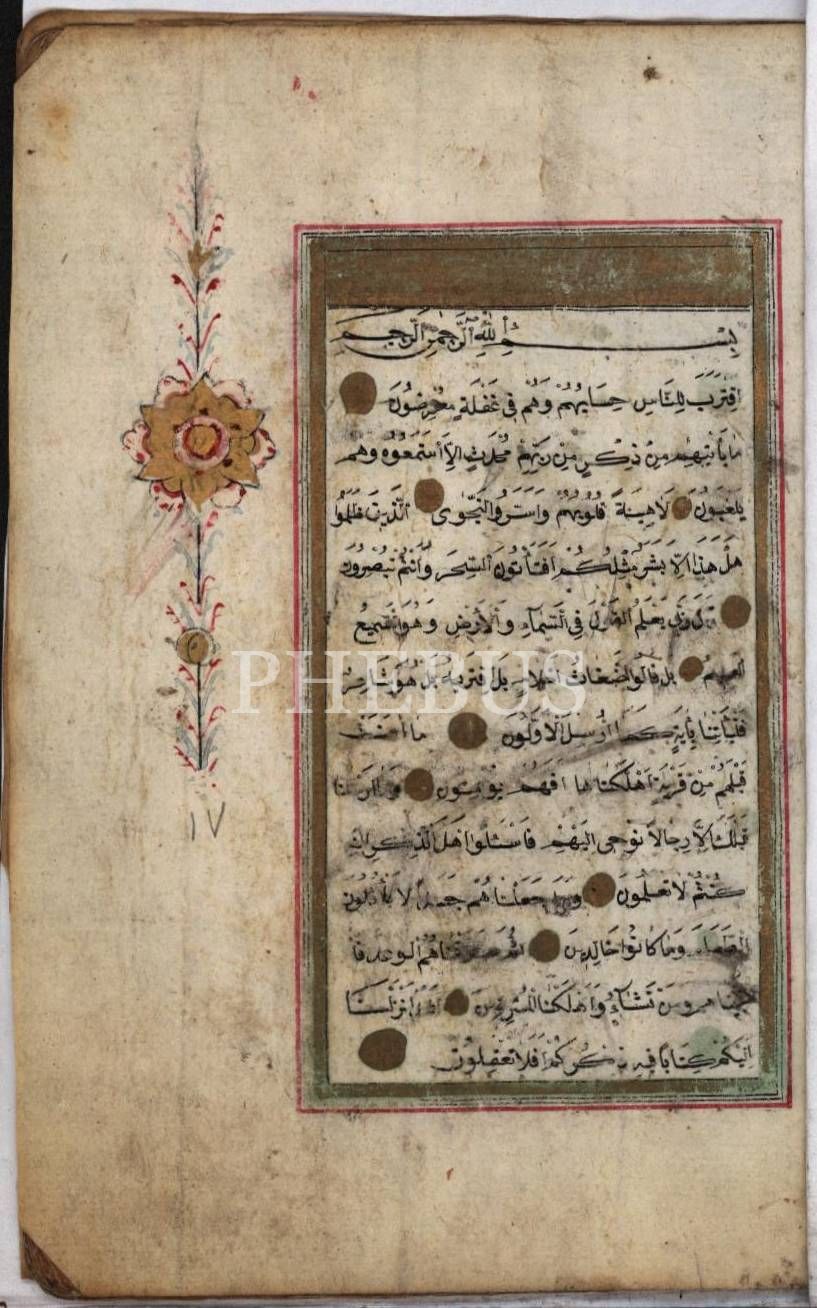 بِسْمِ اللهِ الرَّحْمٰنِ الرَّحِيمِ
اقْتَرَبَ لِلنَّاسِ حِسَابُهُمْ وَهُمْ فِي غَفْلَةٍ مُعْرِضُونَ
مَا يَأْتِيهِمْ مِنْ ذِكْرٍ مِنْ رَبِّهِمْ مُحْدَثٍ اِلَّا اسْتَمَعُوهُ وَهُمْ
يَلْعَبُونَ لَاهِيَةً قُلُوبُهُمْ وَاَسَرُّوا النَّجْوٰى الَّذِينَ ظَلَمُوا
هَلْ هٰذَا اِلَّا بَشَرٌ مِثْلُكُمْ اَفَتَأْتُونَ السِّحْرَ وَاَنْتُمْ تُبْصِرُونَ
قَالَ رَبِّي يَعْلَمُ الْقَوْلَ فِي السَّمَاءِ وَالْاَرْضِ وَهُوَ السَّمِيعُ
الْعَلِيمُ بَلْ قَالُوا اَضْغَاثُ اَحْلَامٍ بَلِ افْتَرٰيهُ بَلْ هُوَ شَاعِرٌ
PHEBUS
فَلْيَأْتِنَا بِاٰيَةٍ كَمَا اُرْسِلَ الْاَوَّلُونَ مَا اٰمَنَتْ
قَبْلَهُمْ مِنْ قَرْيَةٍ اَهْلَكْنَاهَا اَفَهُمْ يُؤْمِنُونَ وَمَا اَرْسَلْنَا
١٧
قَبْلَكَ اِلَّا رِجَالًا نُوحِي اِلَيْهِمْ فَاسْئَلُوا اَهْلَ الذِّكْرِ اِنْ
كُنْتُمْ لَا تَعْلَمُونَ وَمَا جَعَلْنَاهُمْ جَسَدًا لَا يَأْكُلُونَ
الطَّعَامَ وَمَا كَانُوا خَالِدِينَ ثُمَّ صَدَقْنَاهُمُ الْوَعْدَ فَا
نْجَيْنَاهُمْ وَمَنْ نَشَاءُ وَاَهْلَكْنَا الْمُسْرِفِينَ لَقَدْ اَنْزَلْنَا
اِلَيْكُمْ كِتَابًا فِيهِ ذِكْرُكُمْ اَفَلَا تَعْقِلُونَ